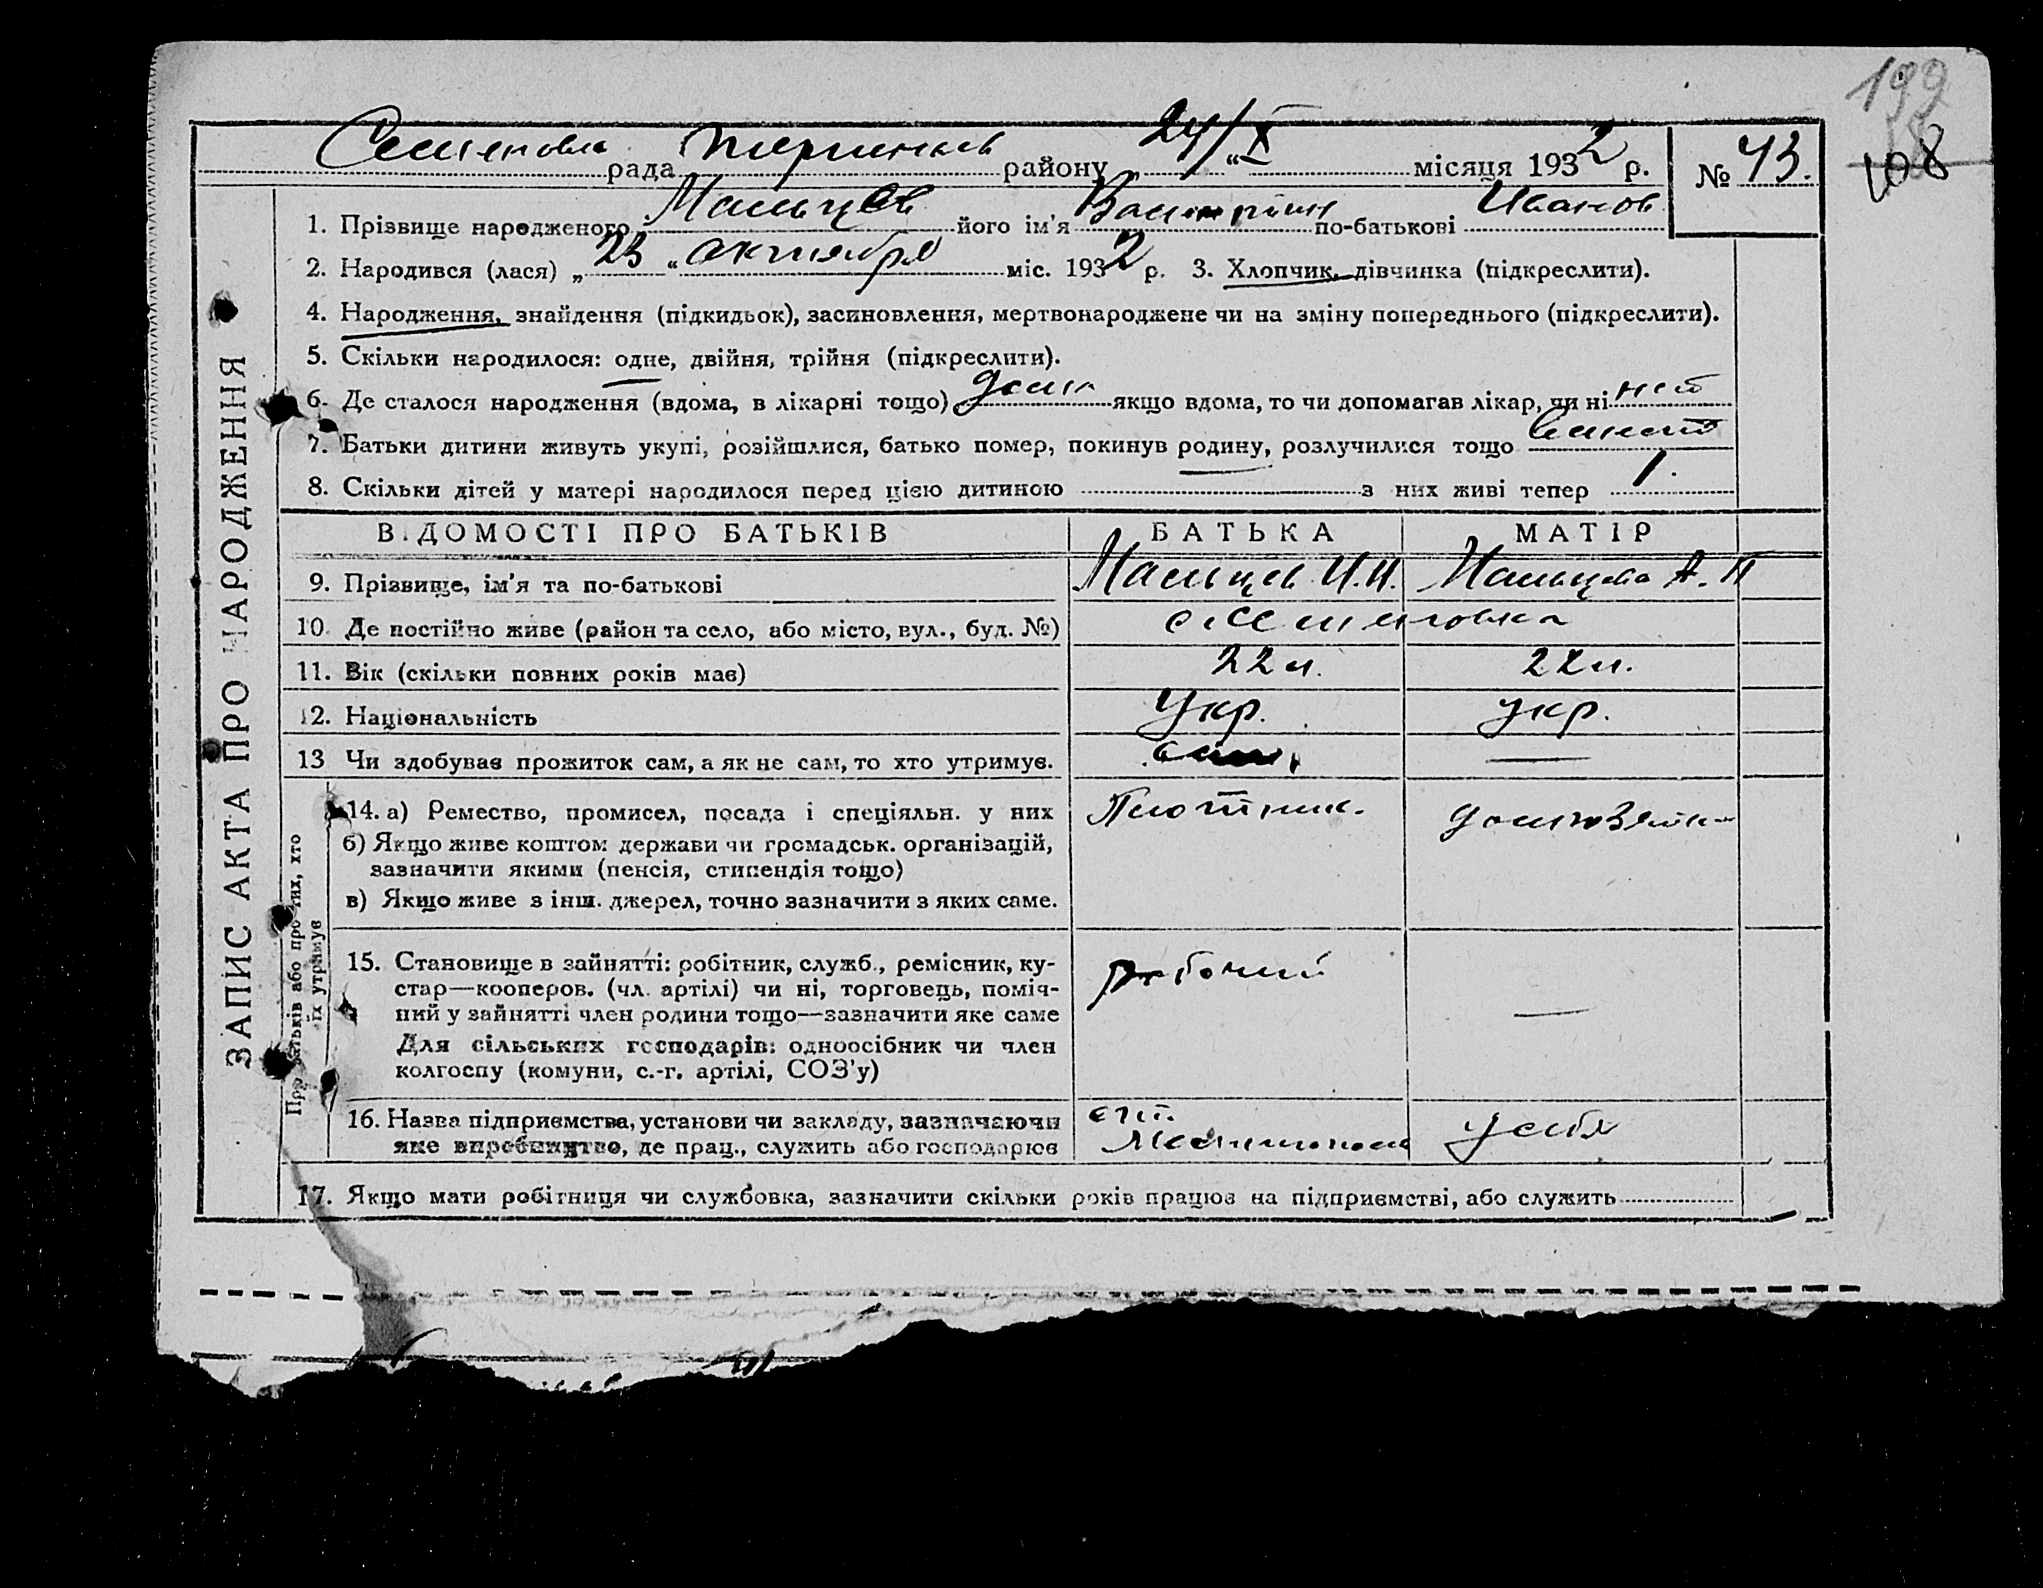 199
108
Семеновка рада район­у „24/X“ місяця 1932 р. № 43.
1. Прізвище народженого Мальцев його ім'я по-батькові Иванов
2. Народився (лася) „23“ октября міс. 1932 р. 3. Хлопчик, дівчинка (підкреслити).
4. Народження, знайдення (підкидьок), засиновлення, мертвонароджене чи на зміну попереднього (підкреслити).
5. Скільки народилося: одне, двійня, трійня (підкреслити).
6. Де сталося народження (вдома, в лікарні тощо) дома якщо вдома, то чи допомагав лікар, чи ні нет
7. Батьки дитини живуть укупі, розійшлися, батько помер, покинув родину, розлучилися тощо
8. Скільки дітей у матері народилося перед цією дитиною — з них живі тепер 1.
ВІДОМОСТІ ПРО БАТЬКІВ БАТЬКА МАТІР
9. Прізвище, ім'я та по-батькові Мальцев И.И. Мальцева А.П
10. Де постійно живе (район та село, або місто, вул., буд. №) с. Семеновка
11. Вік (скільки повних років має) 22 л. 22 л.
12. Національність Укр. укр.
13 Чи здобуває прожиток сам, а як не сам, то хто утримує. сам —
14. а) Ремество, промисел, посада і спеціяльн. у них Плотник. домхозяйка
б) Якщо живе коштом держави чи громадськ. організацій,
зазначити якими (пенсія, стипендія тощо)
в) Якщо живе з інш. джерел, точно зазначити з яких саме.
15. Становище в зайнятті: робітник, служб., ремісник, ку- рабочий —
стар—кооперов. (чл. артілі) чи ні, торговець, поміч-
ний у зайнятті член родини тощо—зазначити яке саме
Для сільських господарів: одноосібник чи член
колгоспу (комуни, с.-г. артілі, СОЗ'у)
16. Назва підприємства, установи чи закладу, зазначаючи ст.
яке виробництво, де прац., служить або господарює у себя
17. Якщо мати робітниця чи службовка, зазначити скільки років працює на підприємстві, або служить
ЗАПИС АКТА ПРО НАРОДЖЕННЯ
Про батьків або про тих, хто
їх утримує